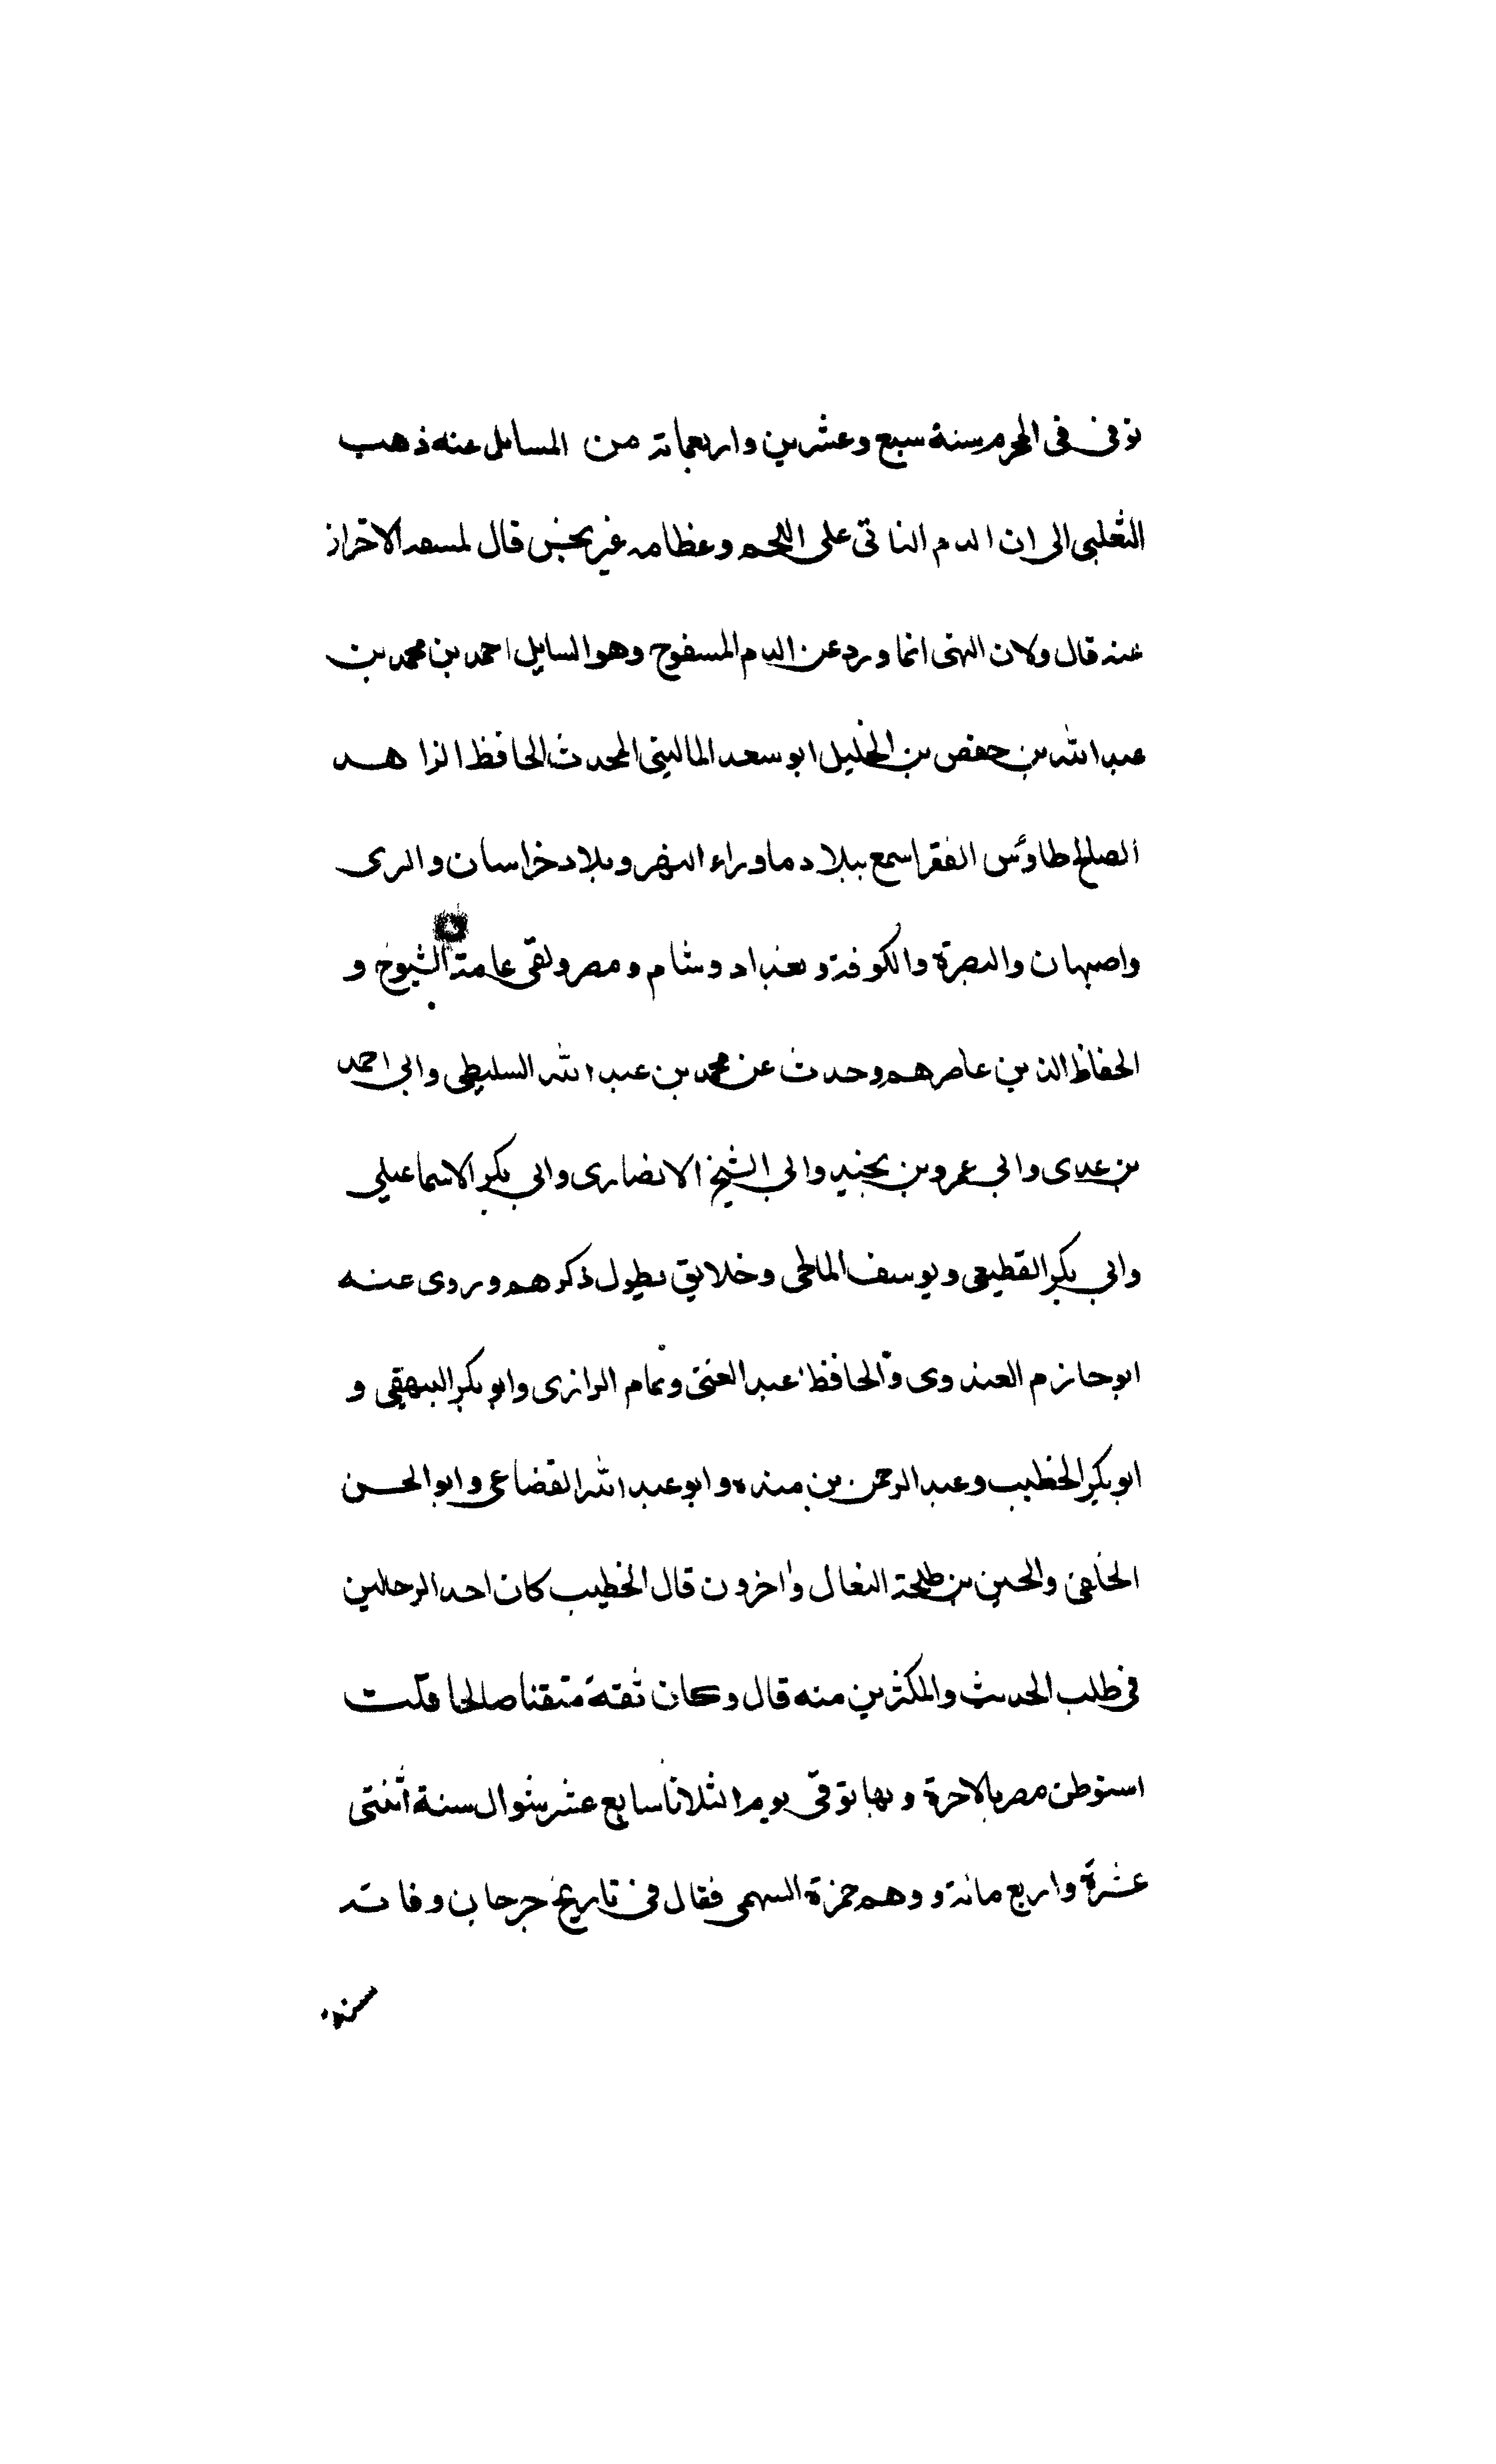 توفى فى المحرم سنة سبع وعشرين واربعماته من المسايل عنه ذهب
الثعلبى الى ان الدم الناتى على اللحم وعظامه غير نجس قال لمسعه الاحتراز
عنه قال ولان النهى انما ورد عن الدم المسفوح وهو السايل احمد بن محمد بن
عبد الله بن حفص بن الخليل ابو سعد المالينى المحدث الحافظ الزاهد
الصالح طاوس الفقرا سمع ببلاد ماوراء النهر وبلاد خراسان والرى
واصبهان والبصرة والكوفة وبغداد وشام ومصر ولقى عامة الشيوخ و
الحفاظ الذين عاصرهم وحدث عن محمد بن عبد الله السليطى وابى احمد
بن عدى وابى عمرو بن نجيد وابى الشيخ الانصارى وابى بكر الاسماعيلى
وابى بكر القطيعى ويوسف الماطحى وخلايق يطول ذكرهم وروى عنه
ابو حازم العبدوى والحافظ عبد الغنى وتمام الرازى وابو بكر البيهقى و
ابو بكر الخطيب وعبد الرحمن بن منده وابو عبد الله القضاعى وابو الحسن
الخلعى والحسين بن طلحة النعال واخرون قال الخطيب كان احد الرحالين
فى طلب الحديث والمكثرين منه قال وكان ثقة متقنا صالحا قلت
استوطن مصر بالاخرة وبها توفى يوم الثلاثا سابع عشر شوال سنة اثنتى
عشرة واربع مائة ووهم حمزة السهمى فقال فى تاريخ جرجان وفاته
سنة